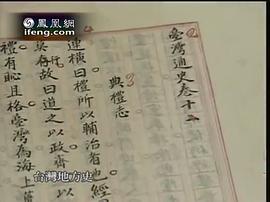 鳳凰網
ifeng.com
臺灣通史卷十
典禮志
連橫曰禮所以輔治者也經國
故曰道之以政齊
禮有恥且格臺灣為海上
台灣地方史